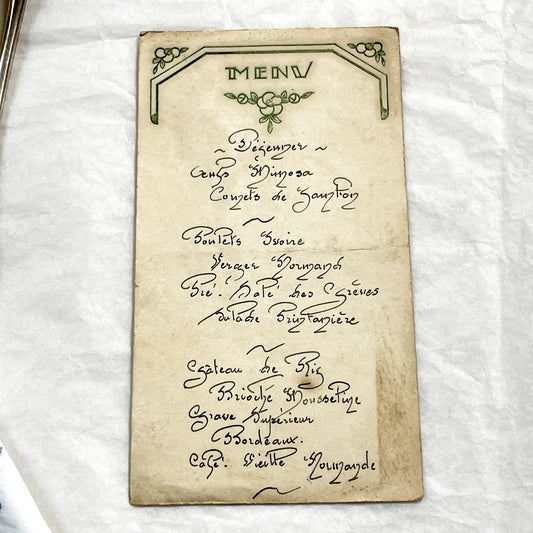 MENU
~ Déjeuner ~
Oeufs Mimosa
Cornets de Jambon
~
Poulets Ivoire
Verger Normand
Pré-Salé des Grèves
Salade Printanière
~
Gâteau de Riz
Brioche Mousseline
Grave Supérieur
Bordeaux.
Café. Vieille Normande
~